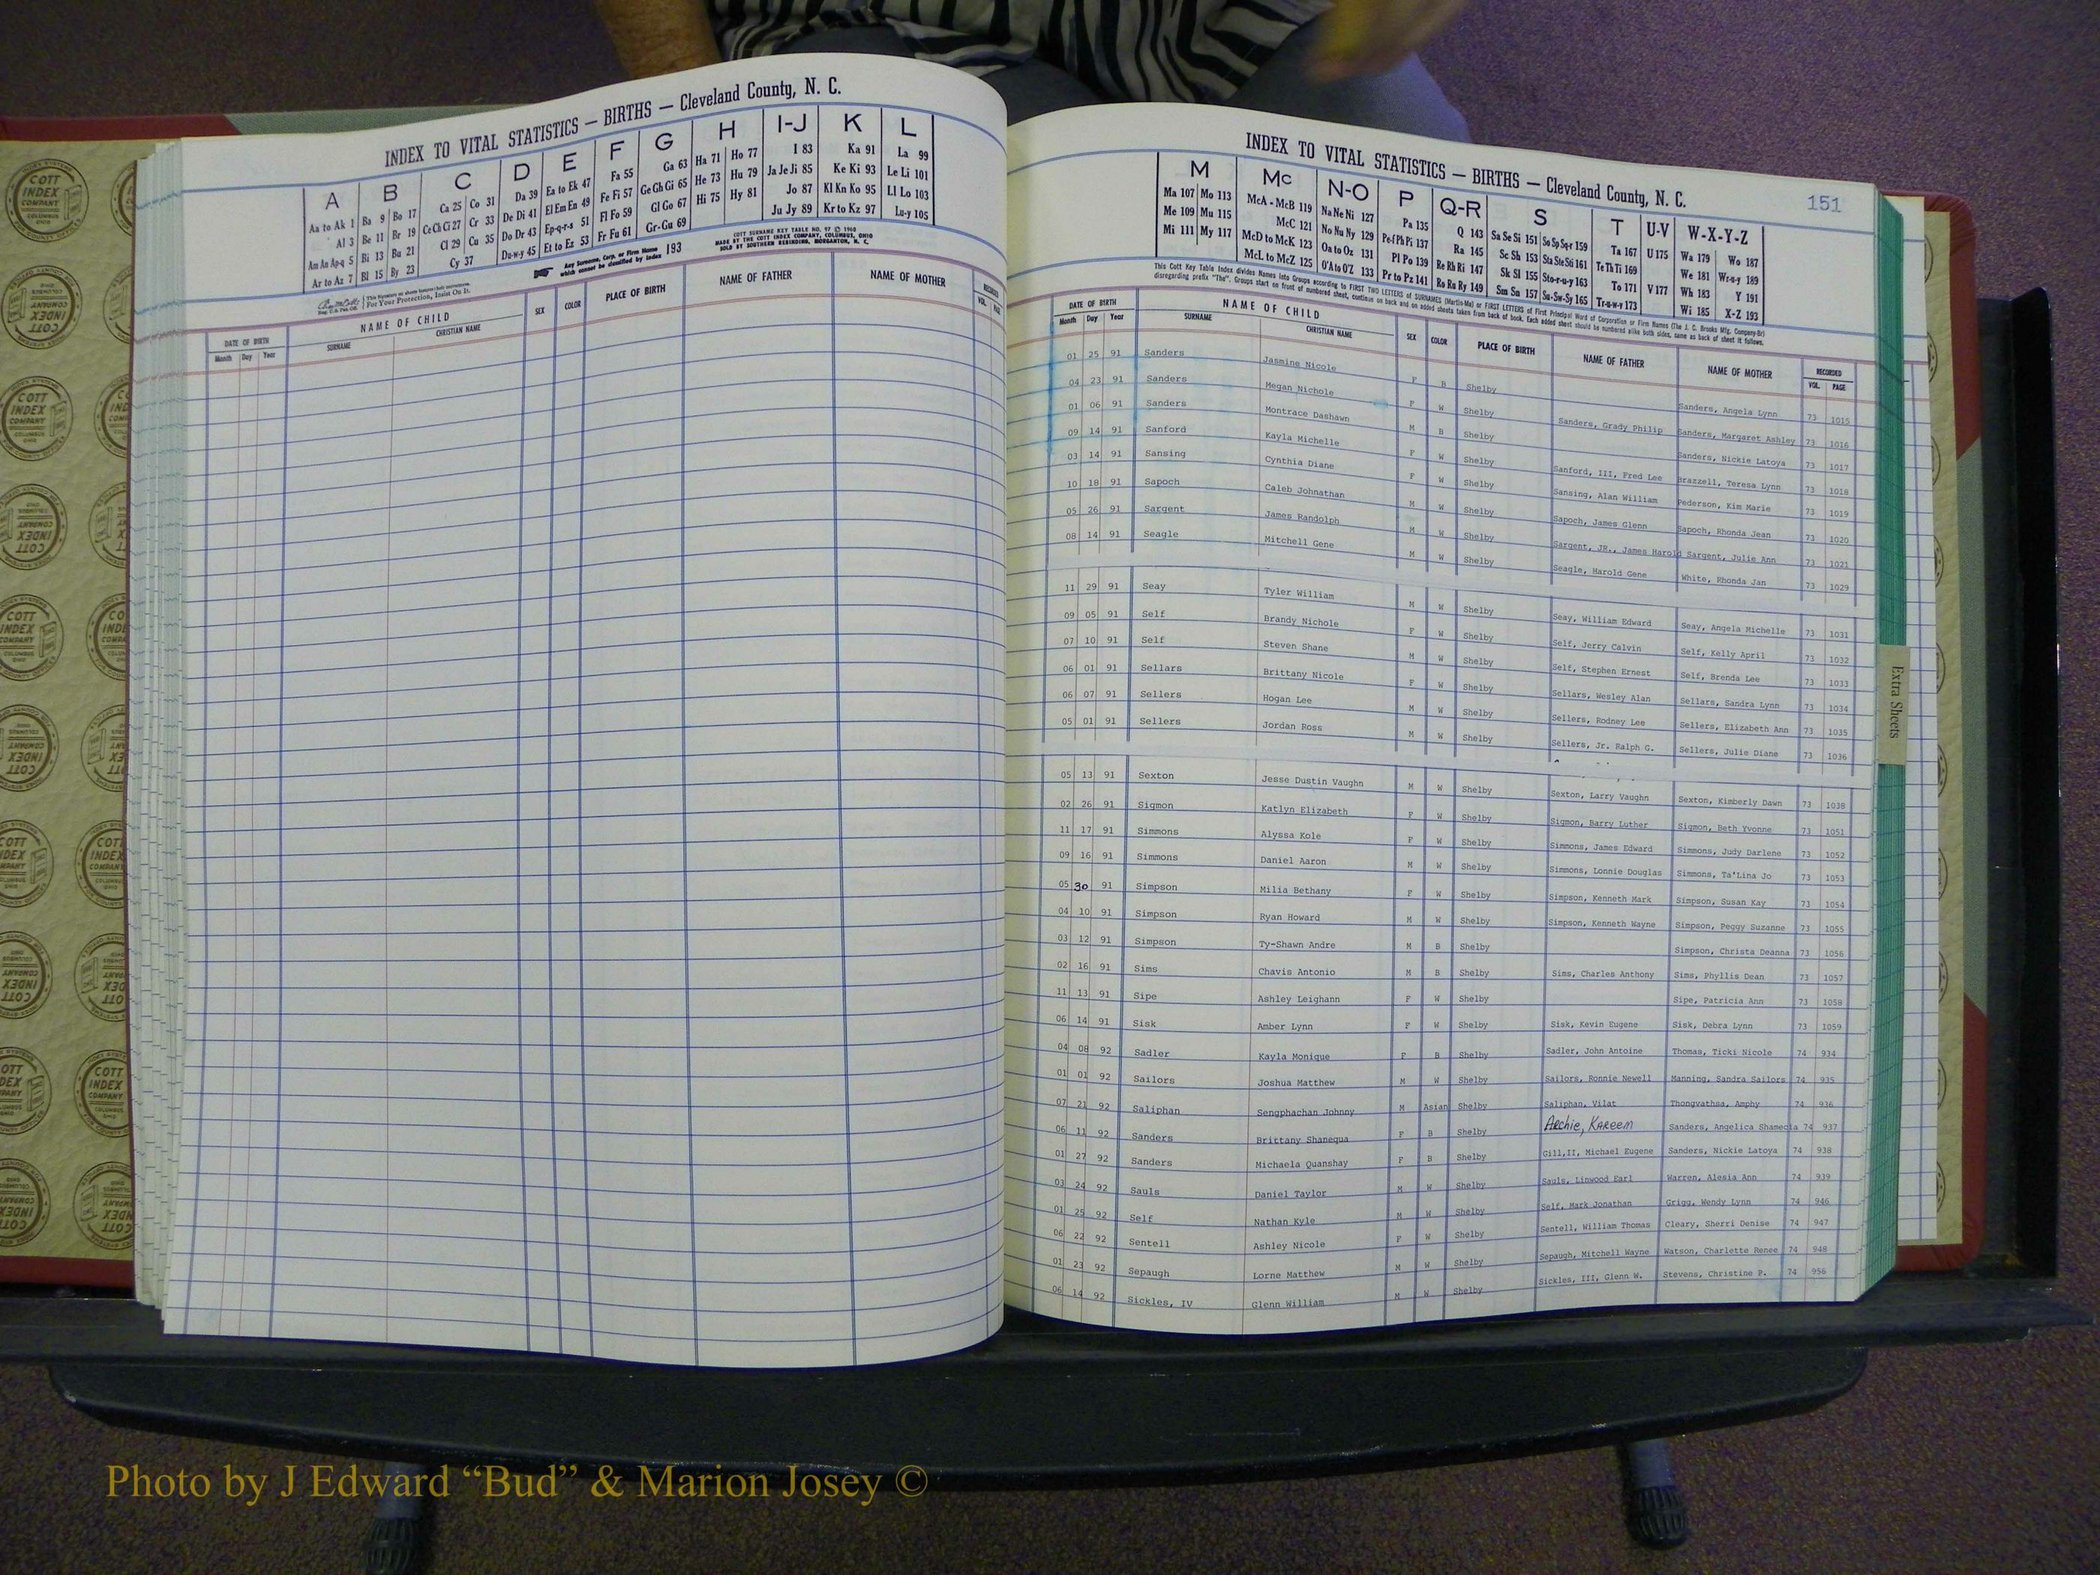 INDEX TO VITAL STATISTICS — BIRTHS — Cleveland County, N. C.
A B C D E F G H I-J K L
Aa to Ak 1 Ba 9 Bo 17 Ca 25 Co 31 Da 39 Ea to Ek 47 Fa 55 Ga 63 Ha 71 Ho 77 I 83 Ka 91 La 99
Al 3 Be 11 Br 19 Ce Ch Ci 27 Cr 33 De Di 41 El Em En 49 Fe Fi 57 Ge Gh Gi 65 He 73 Hu 79 Ja Je Ji 85 Ke Ki 93 Le Li 101
Am An Ap-q 5 Bi 13 Bu 21 Cl 29 Cu 35 Do Dr 43 Ep-q-r-s 51 Fl Fo 59 Gl Go 67 Hi 75 Hy 81 Jo 87 Kl Kn Ko 95 Ll Lo 103
Ar to Az 7 Bl 15 By 23 Cy 37 Du-w-y 45 Et to Ez 53 Fr Fu 61 Gr-Gu 69 Ju Jy 89 Kr to Kz 97 Lu-y 105
Any Surname, Corp. or Firm Name
which cannot be classified by Index 193
COTT SURNAME KEY TABLE NO. 97 © 1960
MADE BY THE COTT INDEX COMPANY, COLUMBUS, OHIO
SOLD BY SOUTHERN REBINDING, MORGANTON, N. C.
For Your Protection, Insist On It.
DATE OF BIRTH NAME OF CHILD SEX COLOR PLACE OF BIRTH NAME OF FATHER NAME OF MOTHER RECORDED
Month Day Year SURNAME CHRISTIAN NAME VOL. PAGE
INDEX TO VITAL STATISTICS — BIRTHS — Cleveland County, N. C.
151
M Mc N-O P Q-R S T U-V W-X-Y-Z
Ma 107 Mo 113 McA - McB 119 Na Ne Ni 127 Pa 135 Q 143 Sa Se Si 151 So Sp Sq-r 159 Ta 167 U 175 Wa 179 Wo 187
Me 109 Mu 115 McC 121 No Nu Ny 129 Pe-f Ph Pi 137 Ra 145 Sc Sh 153 Sta Ste Sti 161 Te Th Ti 169 We 181 Wr-u-y 189
Mi 111 My 117 McD to McK 123 Oa to Oz 131 Pl Po 139 Re Rh Ri 147 Sk Sl 155 Sto-r-u-y 163 To 171 V 177 Wh 183 Y 191
McL to McZ 125 O'A to O'Z 133 Pr to Pz 141 Ro Ru Ry 149 Sm Sn 157 Su-Sw-Sy 165 Tr-u-w-y 173 Wi 185 X-Z 193
This Cott Key Table Index divides Names into Groups according to FIRST TWO LETTERS of SURNAMES (Martin-Ma) or FIRST LETTERS of First Principal Word of Corporation or Firm Names (The J. C. Brooks Mfg. Company-Br)
disregarding prefix "The". Groups start on front of numbered sheet, continue on back and on added sheets taken from back of book. Each added sheet should be numbered alike both sides, same as back of sheet it follows.
DATE OF BIRTH NAME OF CHILD SEX COLOR PLACE OF BIRTH NAME OF FATHER NAME OF MOTHER RECORDED
Month Day Year SURNAME CHRISTIAN NAME VOL. PAGE
01 25 91 Sanders Jasmine Nicole F B Shelby Sanders, Angela Lynn 73 1015
04 23 91 Sanders Megan Nichole F W Shelby Sanders, Grady Philip Sanders, Margaret Ashley 73 1016
01 06 91 Sanders Montrace Dashawn M B Shelby Sanders, Nickie Latoya 73 1017
09 14 91 Sanford Kayla Michelle F W Shelby Sanford, III, Fred Lee Brazzell, Teresa Lynn 73 1018
03 14 91 Sansing Cynthia Diane F W Shelby Sansing, Alan William Pederson, Kim Marie 73 1019
10 18 91 Sapoch Caleb Johnathan M W Shelby Sapoch, James Glenn Sapoch, Rhonda Jean 73 1020
05 26 91 Sargent James Randolph M W Shelby Sargent, JR., James Harold Sargent, Julie Ann 73 1021
08 14 91 Seagle Mitchell Gene M W Shelby Seagle, Harold Gene White, Rhonda Jan 73 1029
11 29 91 Seay Tyler William M W Shelby Seay, William Edward Seay, Angela Michelle 73 1031
09 05 91 Self Brandy Nichole F W Shelby Self, Jerry Calvin Self, Kelly April 73 1032
07 10 91 Self Steven Shane M W Shelby Self, Stephen Ernest Self, Brenda Lee 73 1033
06 01 91 Sellars Brittany Nicole F W Shelby Sellars, Wesley Alan Sellars, Sandra Lynn 73 1034
06 07 91 Sellers Hogan Lee M W Shelby Sellers, Rodney Lee Sellers, Elizabeth Ann 73 1035
05 01 91 Sellers Jordan Ross M W Shelby Sellers, Jr. Ralph G. Sellers, Julie Diane 73 1036
05 13 91 Sexton Jesse Dustin Vaughn M W Shelby Sexton, Larry Vaughn Sexton, Kimberly Dawn 73 1038
02 26 91 Sigmon Katlyn Elizabeth F W Shelby Sigmon, Barry Luther Sigmon, Beth Yvonne 73 1051
11 17 91 Simmons Alyssa Kole F W Shelby Simmons, James Edward Simmons, Judy Darlene 73 1052
09 16 91 Simmons Daniel Aaron M W Shelby Simmons, Lonnie Douglas Simmons, Ta'Lina Jo 73 1053
05 30 91 Simpson Milia Bethany F W Shelby Simpson, Kenneth Mark Simpson, Susan Kay 73 1054
04 10 91 Simpson Ryan Howard M W Shelby Simpson, Kenneth Wayne Simpson, Peggy Suzanne 73 1055
03 12 91 Simpson Ty-Shawn Andre M B Shelby Simpson, Christa Deanna 73 1056
02 16 91 Sims Chavis Antonio M B Shelby Sims, Charles Anthony Sims, Phyllis Dean 73 1057
11 13 91 Sipe Ashley Leighann F W Shelby Sipe, Patricia Ann 73 1058
06 14 91 Sisk Amber Lynn F W Shelby Sisk, Kevin Eugene Sisk, Debra Lynn 73 1059
04 08 92 Sadler Kayla Monique F B Shelby Sadler, John Antoine Thomas, Ticki Nicole 74 934
01 01 92 Sailors Joshua Matthew M W Shelby Sailors, Ronnie Newell Manning, Sandra Sailors 74 935
07 21 92 Saliphan Sengphachan Johnny M Asian Shelby Saliphan, Vilat Thongvathsa, Amphy 74 936
06 11 92 Sanders Brittany Shanequa F B Shelby Archie, Kareem Sanders, Angelica Shamecia 74 937
01 27 92 Sanders Michaela Quanshay F B Shelby Gill,II, Michael Eugene Sanders, Nickie Latoya 74 938
03 24 92 Sauls Daniel Taylor M W Shelby Sauls, Linwood Earl Warren, Alesia Ann 74 939
01 25 92 Self Nathan Kyle M W Shelby Self, Mark Jonathan Grigg, Wendy Lynn 74 946
06 22 92 Sentell Ashley Nicole F W Shelby Sentell, William Thomas Cleary, Sherri Denise 74 947
01 23 92 Sepaugh Lorne Matthew M W Shelby Sepaugh, Mitchell Wayne Watson, Charlette Renee 74 948
06 14 92 Sickles, IV Glenn William M W Shelby Sickles, III, Glenn W. Stevens, Christine P. 74 956
Extra Sheets
COTT
INDEX
COMPANY
COLUMBUS
OHIO
Photo by J Edward “Bud” & Marion Josey ©